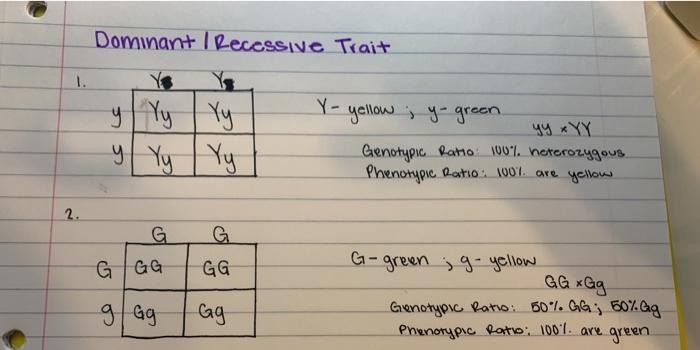 Dominant / Recessive Trait
1.
Y Y
y Yy Yy
y Yy Yy
Y - yellow ; y - green
yy x YY
Genotypic Ratio: 100% heterozygous
Phenotypic Ratio: 100% are yellow
2.
G G
G GG GG
g Gg Gg
G - green ; g - yellow
GG x Gg
Genotypic Ratio: 50% GG; 50% Gg
Phenotypic Ratio: 100% are green